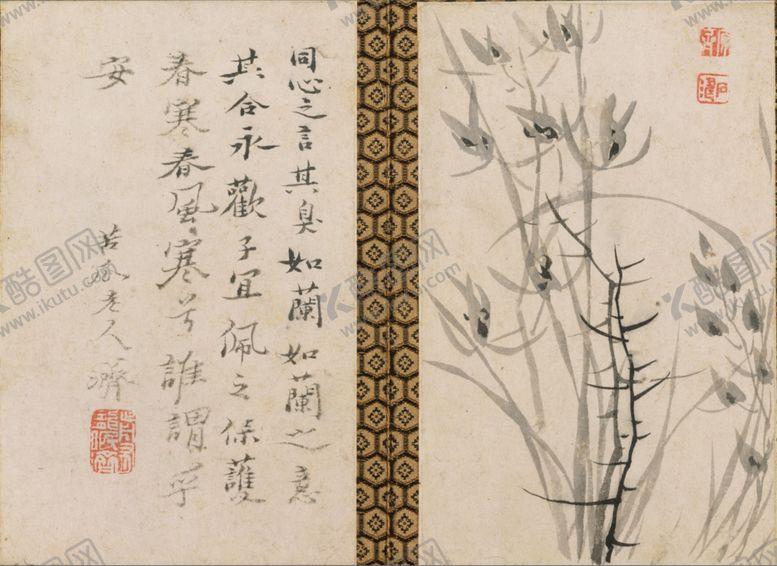 同心之言其臭如蘭如蘭之意
其合永歡子宜佩之保護
春寒春風寒兮誰謂乎
安
苦瓜老人濟
酷图网
www.ikutu.com